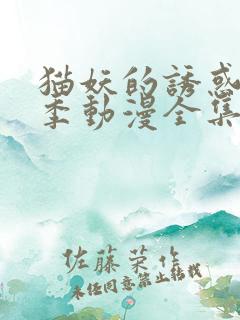 猫妖的誘惑
季動漫全集
佐藤菜作
未任同意禁止转载